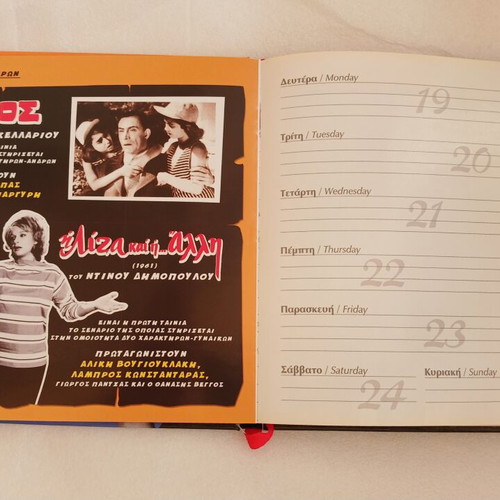 ΟΣ
ΤΑΙΝΙΑ
ΣΤΗΡΙΖΕΤΑΙ
η Λίζα και η... Άλλη
(1961)
του ΝΤΙΝΟΥ ΔΗΜΟΠΟΥΛΟΥ
ΕΙΝΑΙ Η ΠΡΩΤΗ ΤΑΙΝΙΑ
ΤΟ ΣΕΝΑΡΙΟ ΤΗΣ ΟΠΟΙΑΣ ΣΤΗΡΙΖΕΤΑΙ
ΣΤΗΝ ΟΜΟΙΟΤΗΤΑ ΔΥΟ ΧΑΡΑΚΤΗΡΩΝ-ΓΥΝΑΙΚΩΝ
ΠΡΩΤΑΓΩΝΙΣΤΟΥΝ
ΑΛΙΚΗ ΒΟΥΓΙΟΥΚΛΑΚΗ,
ΛΑΜΠΡΟΣ ΚΩΝΣΤΑΝΤΑΡΑΣ,
ΓΙΩΡΓΟΣ ΠΑΝΤΖΑΣ ΚΑΙ Ο ΘΑΝΑΣΗΣ ΒΕΓΓΟΣ
Δευτέρα / Monday
19
Τρίτη / Tuesday
20
Τετάρτη / Wednesday
21
Πέμπτη / Thursday
22
Παρασκευή / Friday
23
Σάββατο / Saturday
Κυριακή / Sunday
24